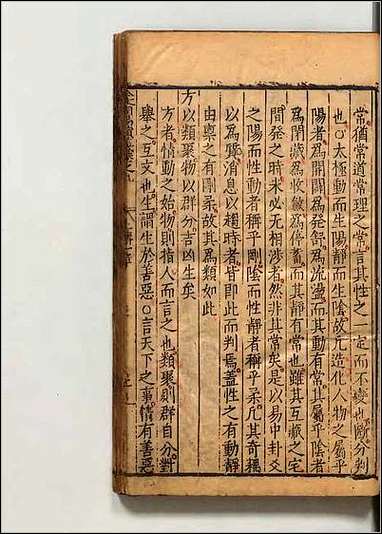 常猶常道常理之常言其性之一定而不變也斷分判
也○太極動而生陽靜而生陰故凡造化人物之屬乎
陽者爲開闢爲發舒爲流盪而其動有常其屬乎陰者
爲閉藏爲收斂爲停蓄而其靜有常也雖其互藏之宅
間發之時未必無相涉者然非其常矣是以易中卦爻
之陽而性動者稱乎剛陰而性靜者稱乎柔凡其奇耦
以爲象消息以趨時者皆即此而判焉蓋性之有動靜
由稟之有剛柔故其爲類如此
方以類聚物以群分吉凶生矣
方者情動之始物則指人而言之也類聚則群自分對
舉之互文也生謂生於善惡○言天下之事情有善惡